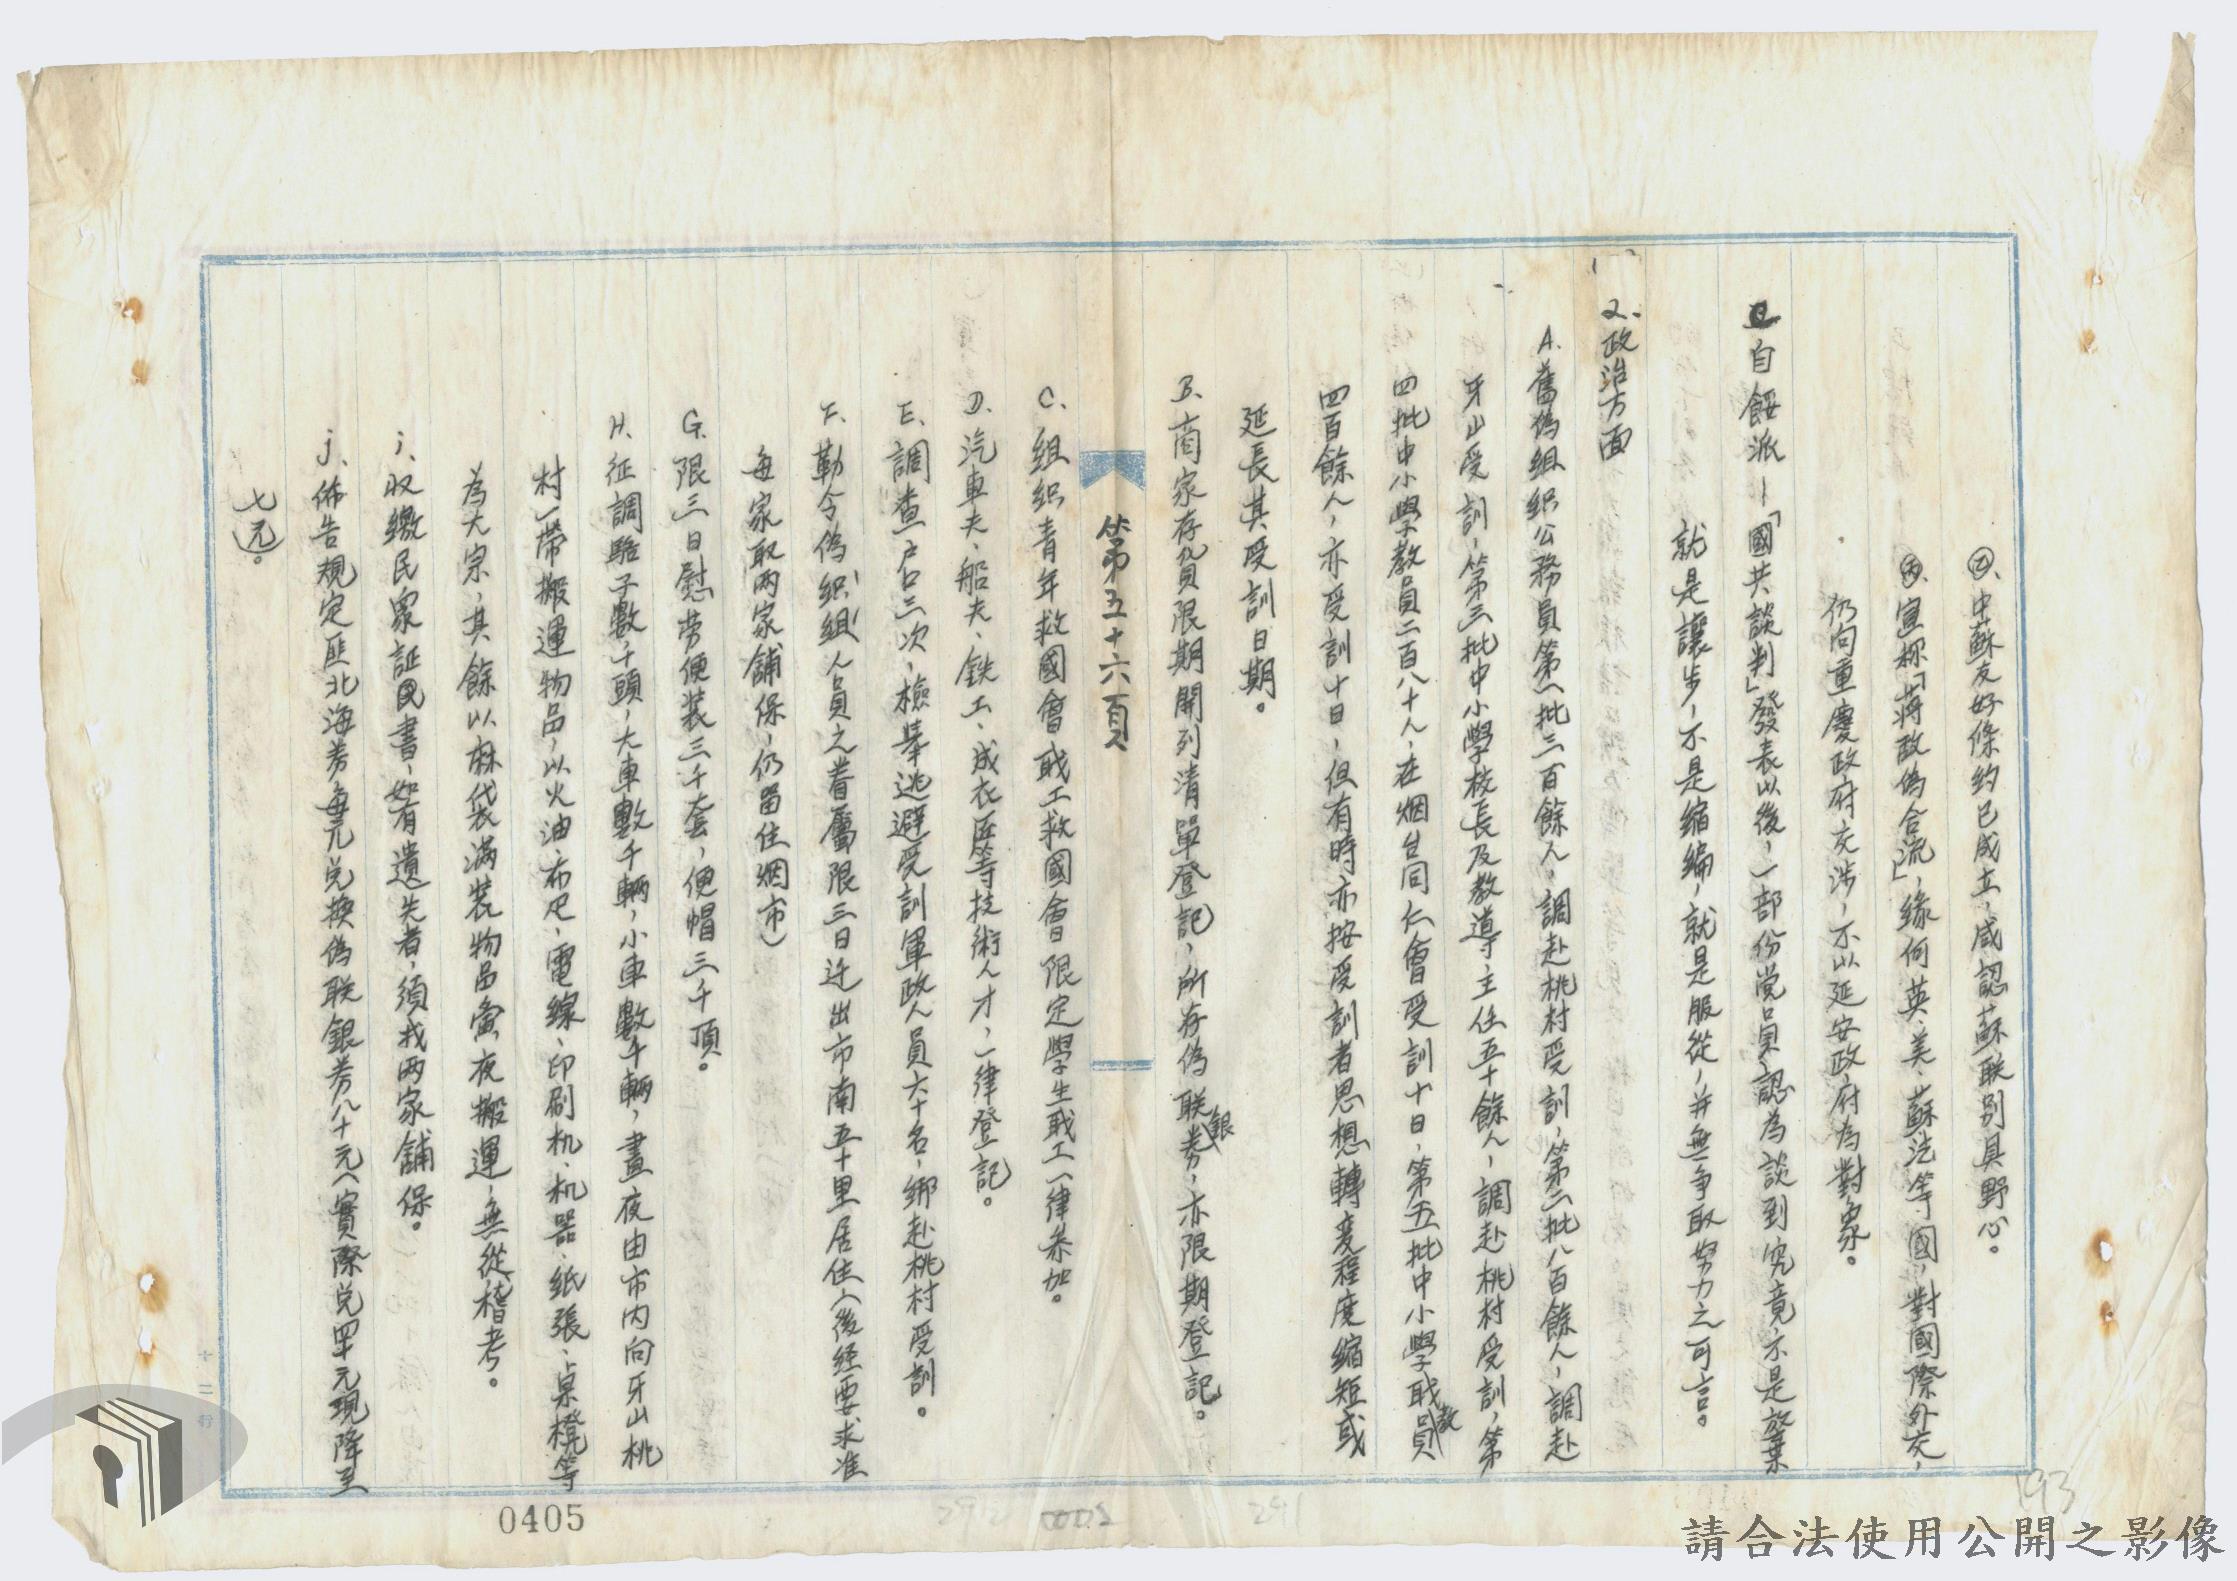 乙、中蘇友好條約已成立，咸認蘇联別具野心。
丙、宣称「蔣政偽合流」，緣何英、美、蘇法等國，對國際外交，
仍向重慶政府交涉，不以延安政府為對象。
自餒派—「國共談判」發表以後，一部份党員認為談到究竟不是放棄
就是讓步，不是缩編，就是服從，并無爭取努力之可言。
2.政治方面
A.舊偽組织公務員第一批三百餘人，調赴桃村受訓，第二批八百餘人，調赴
牙山受訓，第三批中小學校長及教導主任五十餘人，調赴桃村受訓，第
四批中小學教員二百八十人，在烟台同仁會受訓十日，第五批中小學教职員
四百餘人，亦受訓十日，但有時亦按受訓者思想轉变程度缩短或
延長其受訓日期。
B、商家存貨限期開列清單登記，所存偽联銀券，亦限期登記。
第五十六頁
C、組织青年救國會职工救國會限定學生职工一律参加。
D、汽車夫、船夫、鉄工、成衣匠等技術人才，一律登記。
E、調查户口三次，檢舉逃避受訓軍政人員六十名，綁赴桃村受訓。
F、勒令偽织組人員之眷屬限三日迁出市南五十里居住（後經要求准
每家取兩家舖保，仍留住烟市）
G.限三日慰劳便装三千套，便帽三千頂。
H.征調騾子數千頭，大車數千輛，小車數千輛，晝夜由市内向牙山桃
村一帶搬運物品，以火油、布疋、電線、印刷机、机器、紙張、桌櫈等
為大宗，其餘以麻袋滿装物品夤夜搬運，無從稽考。
i、收繳民衆証書，如有遺失者，須找兩家舖保。
j、佈告規定匪北海券每元兑換偽联銀券八十元（實際兑四十元現降至
七元）。
0405
193
291
292
十二行
請合法使用公開之影像